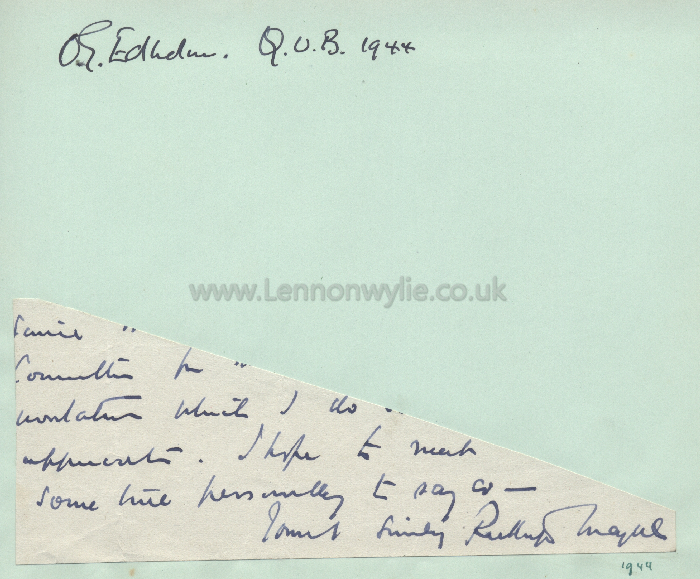 O.G. Edholm. Q.U.B. 1944
www.Lennonwylie.co.uk
Same
Committee for
invitation which I do
appreciate. I hope to meet
some time personally to say so —
Yours Sincerely
1944